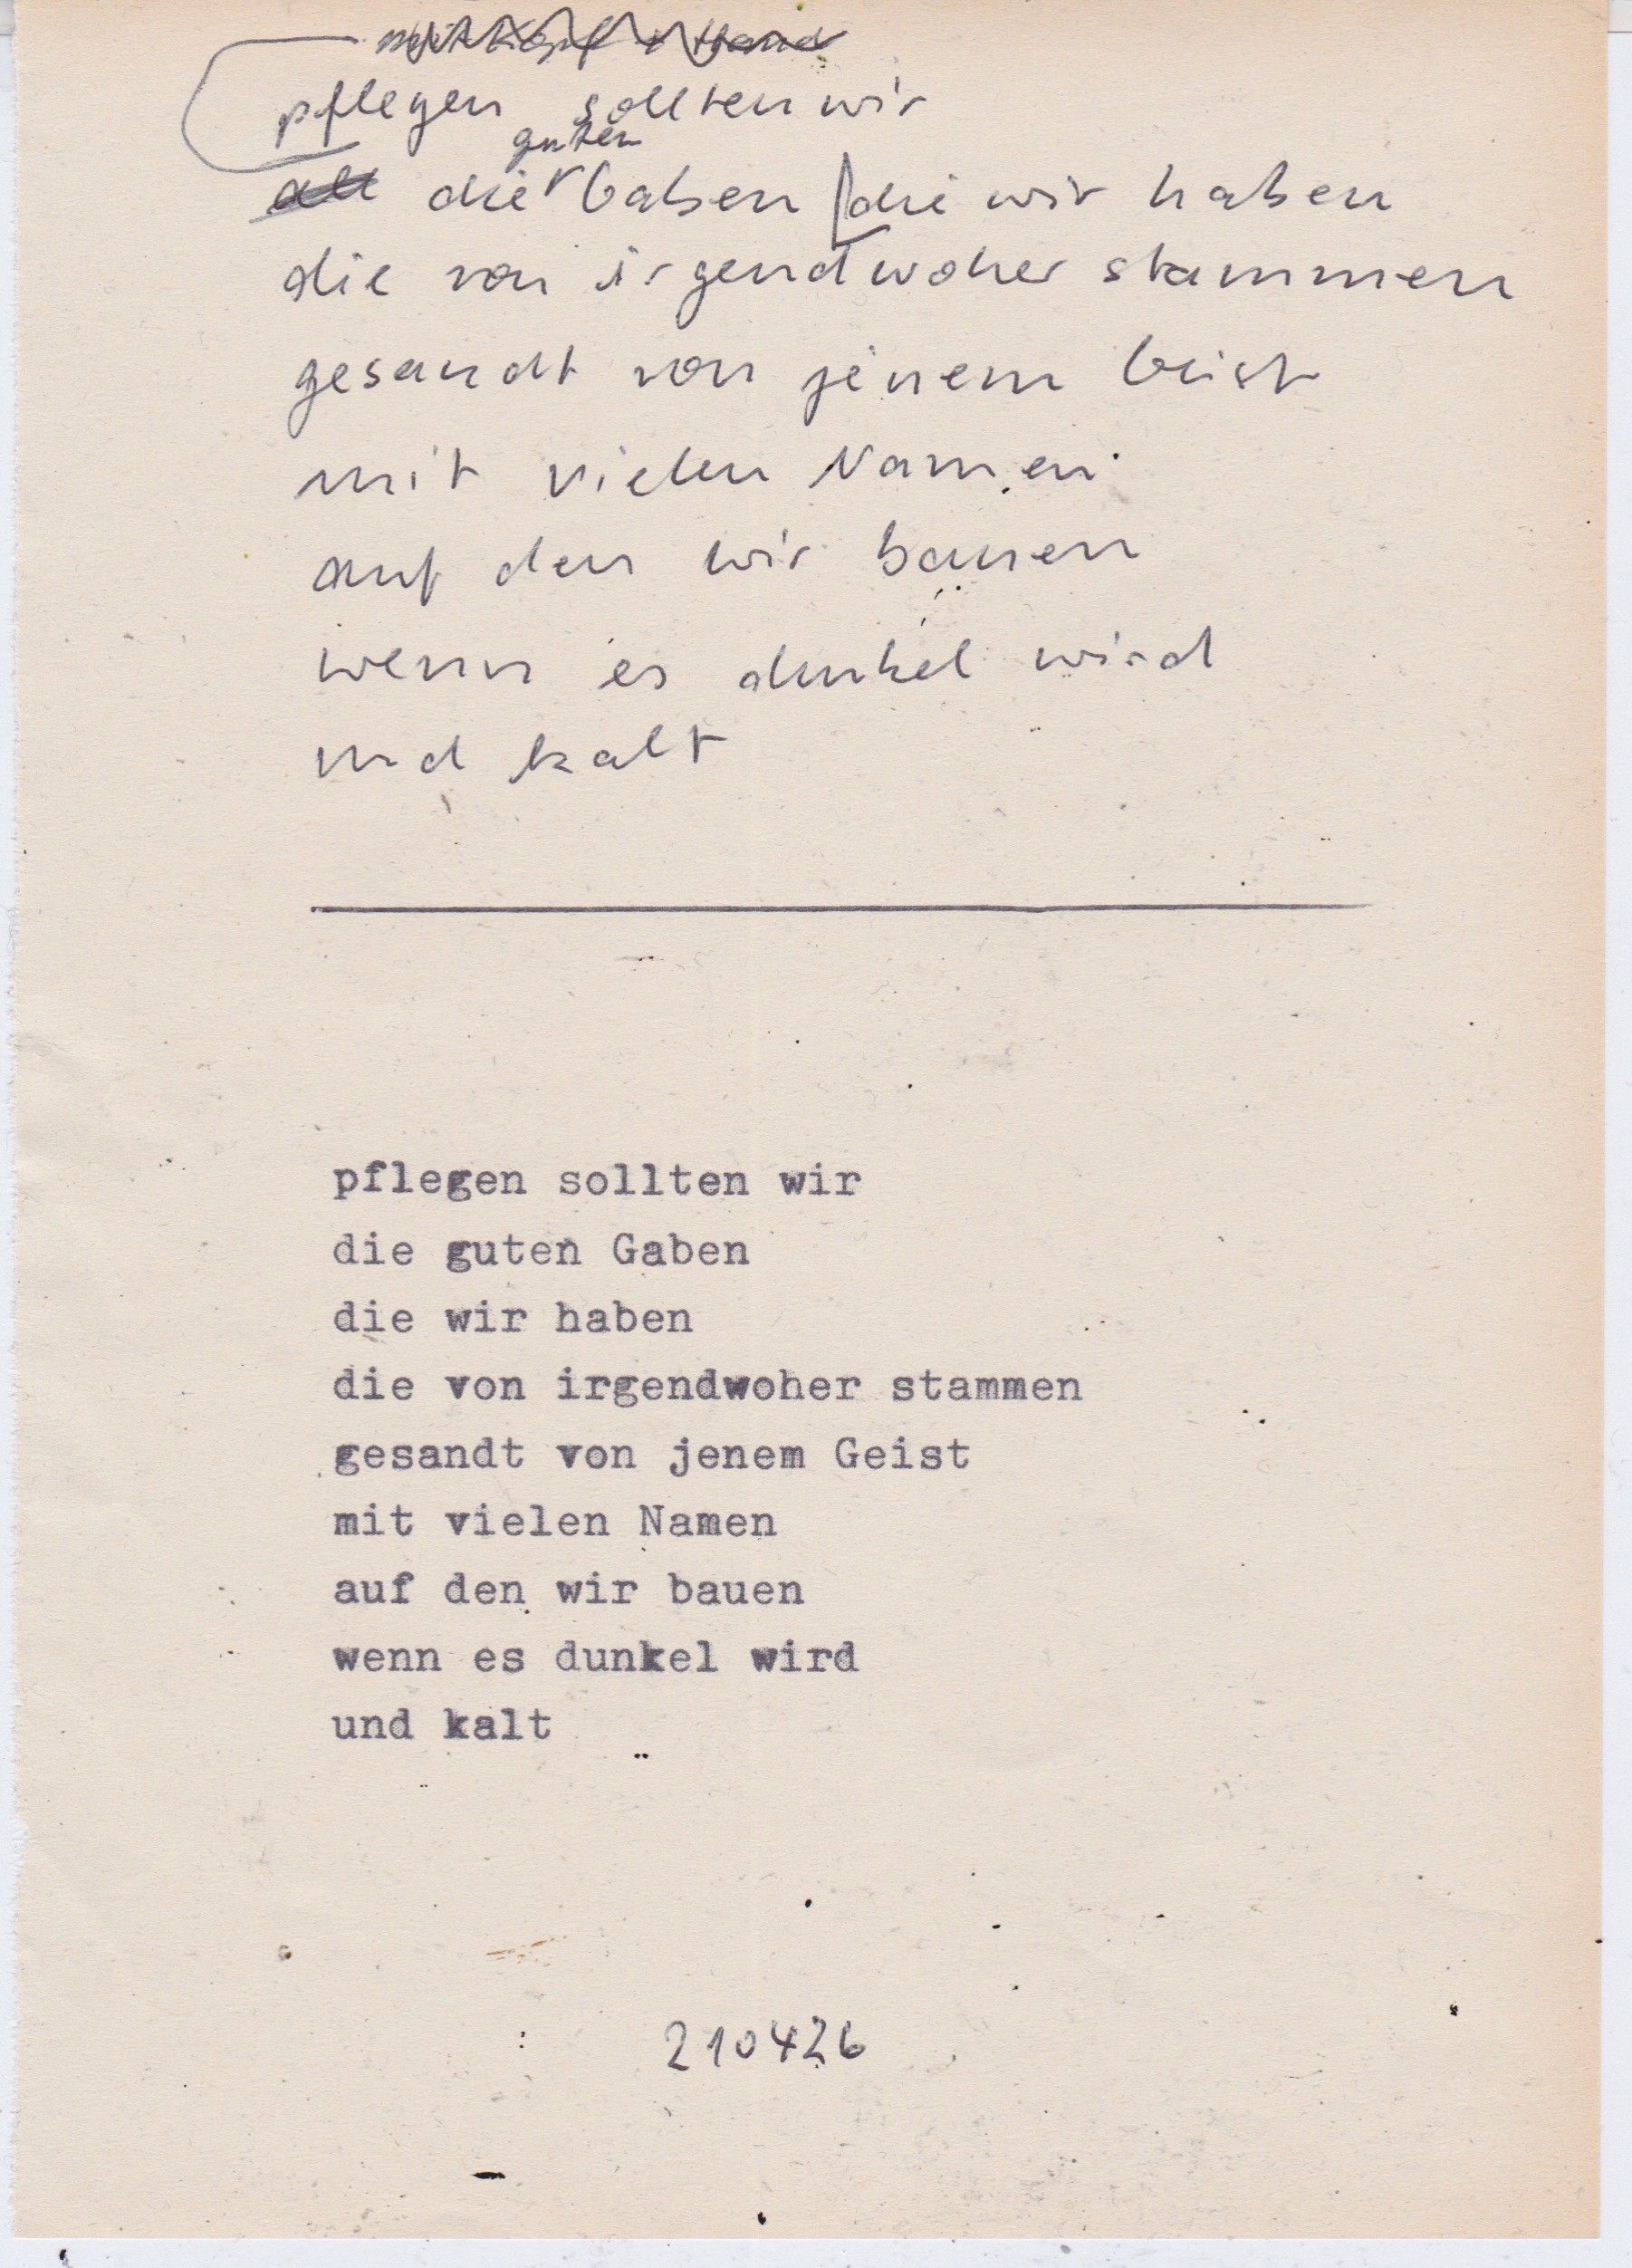 pflegen sollten wir
guten
all die Gaben die wir haben
die von irgendwoher stammen
gesandt von jenem Geist
mit vielen Namen
auf den wir bauen
wenn es dunkel wird
und kalt
pflegen sollten wir
die guten Gaben
die wir haben
die von irgendwoher stammen
gesandt von jenem Geist
mit vielen Namen
auf den wir bauen
wenn es dunkel wird
und kalt
210426